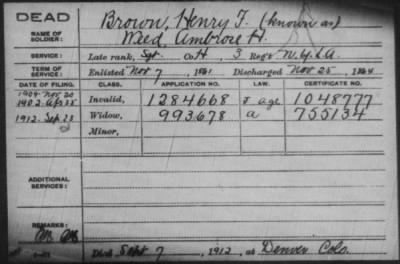 DEAD
Brown, Henry F. (known as)
NAME OF SOLDIER: Weed, Ambrose H.
SERVICE: Late rank, Sgt. Co. H, 3 Reg't N.Y.L.A.
TERM OF SERVICE: Enlisted Nov 7, 1861 Discharged Nov 25, 1864
DATE OF FILING. CLASS. APPLICATION NO. LAW. CERTIFICATE NO.
1904 Nov 20
1902 Apr 25 Invalid, 1284668 J age 1048777
1912 Sep 23 Widow, 993678 a 755134
Minor,
ADDITIONAL SERVICES:
REMARKS:
Died Sept 7, 1912, at Denver Colo.